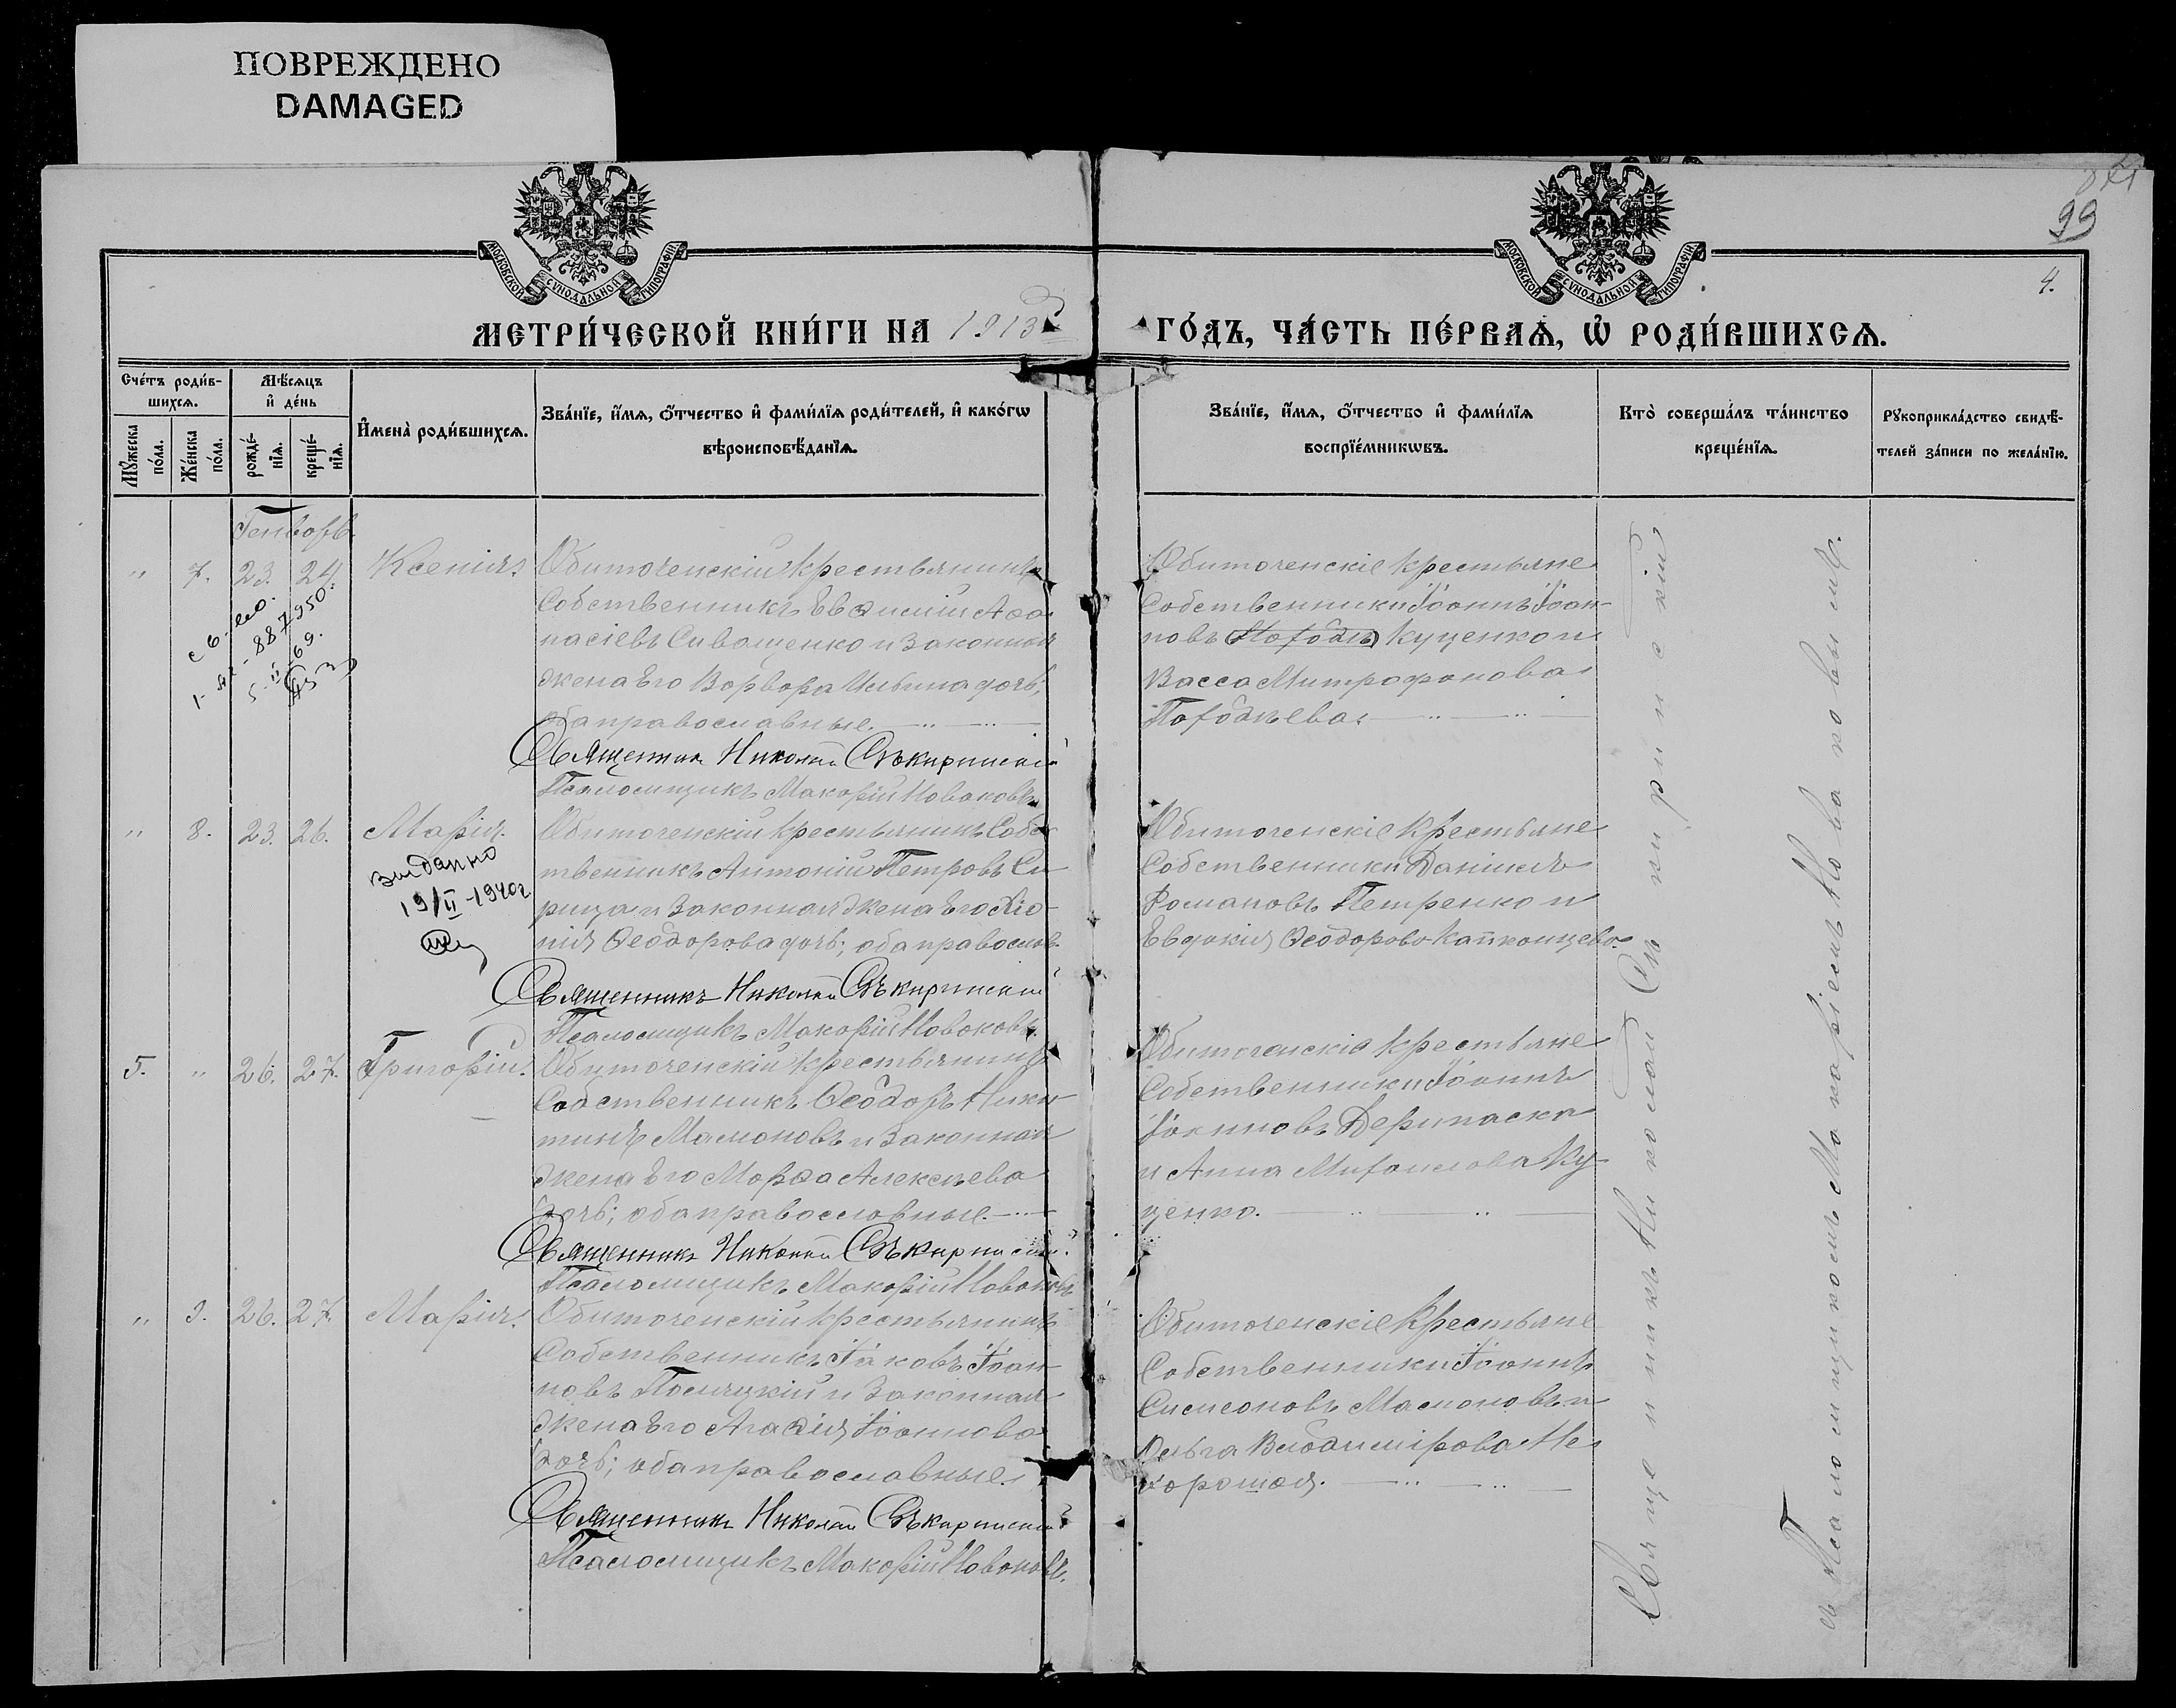 ПОВРЕЖДЕНО
DAMAGED
99
4.
МОСКОВСКОЙ СУНОДАЛЬНОЙ ТИПОГРАФІИ
МОСКОВСКОЙ СУНОДАЛЬНОЙ ТИПОГРАФІИ
МЕТРИ́ЧЕСКОЙ КНИ́ГИ НА 1913
ГО́ДЪ, ЧА́СТЬ ПЕ́РВАѦ, Ѡ҆ РОДИ́ВШИХСѦ.
Сче́тъ роди́в-
шихсѧ.
Мꙋ́жеска
по́ла.
Же́нска
по́ла.
Мѣ́сѧцъ
и҆ де́нь
рожде́-
нїѧ.
креще́-
нїѧ.
И҆мена̀ роди́вшихсѧ.
Зва́нїе, и҆́мѧ, ѻ҆́тчество и҆ фами́лїѧ роди́телей, и҆ како́гѡ
вѣроисповѣ́данїѧ.
Зва́нїе, и҆́мѧ, ѻ҆́тчество и҆ фами́лїѧ
воспрїе́мникѡвъ.
Кто̀ соверша́лъ та́инство
креще́нїѧ.
Рꙋкоприкла́дство свидѣ́-
телей за́писи по жела́нїю.
Генворь
„ 7. 23. 24. Ксенія.
Обиточенскій крестьянинъ
Собственникъ Евѳимій Аѳа-
насіевъ Сиващенко и Законная
жена Его Варвара Ильина дочь;
оба православные.
Священникъ Николай Сѣкиринскій
Псаломщикъ Макарій Новаковъ.
Обиточенскіе крестьяне
Собственники Іоаннъ Іоан-
новъ Куценко и
Васса Митрофанова
„ 8. 23. 26. Марія.
видано
19/II-1940г
Обиточенскій крестьянинъ Собс-
твенникъ Антоній Петровъ Си-
рица и Законная жена Его Хіо-
нія Ѳеодорова дочь; оба православ.
Священникъ Николай Сѣкиринскій
Псаломщикъ Макарій Новаковъ.
Обиточенскіе крестьяне
Собственники Даніилъ
Романовъ Петренко и
Евдокія Ѳеодорова
5. „ 26. 27. Григорій.
Обиточенскій крестьянинъ
Собственникъ Ѳеодоръ Ники-
тинъ Мамоновъ и Законная
жена Его Марѳа Алексѣева
дочь; оба православные.
Священникъ Николай Сѣкиринскій
Псаломщикъ Макарій Новаковъ
Обиточенскіе крестьяне
Собственники Іоаннъ
Іоанновъ Дерипаска
и Анна Михаилова Ку-
ценко.
„ 9. 26. 27. Марія.
Обиточенскій крестьянинъ
Собственникъ Іаковъ Іоан-
новъ и Законная
жена Его Агаѳія Іоаннова
дочь; оба православные.
Священникъ Николай Сѣкиринскій
Псаломщикъ Макарій Новаковъ.
Обиточенскіе Крестьяне
Собственники Іоаннъ
Симеоновъ Мамоновъ и
Ольга Владимірова Не-
хорошая.
Священникъ Николай Сѣкиринскій
съ Псаломщикомъ Макаріемъ Новаковымъ.